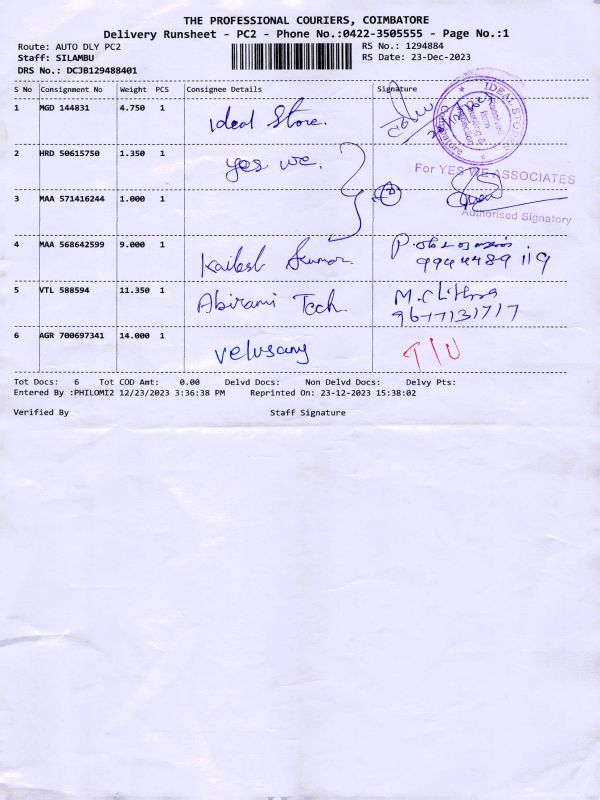 THE PROFESSIONAL COURIERS, COIMBATORE
Delivery Runsheet - PC2 - Phone No.:0422-3505555 - Page No.:1
Route: AUTO DLY PC2
Staff: SILAMBU
DRS No.: DCJB129488401
RS No.: 1294884
RS Date: 23-Dec-2023
S No Consignment No Weight PCS Consignee Details Signature
1 MGD 144831 4.750 1 Ideal Store.
IDEAL STORES
2 HRD 50615750 1.350 1 Yes we.
For YES WE ASSOCIATES
3 MAA 571416244 1.000 1
Authorised Signatory
4 MAA 568642599 9.000 1 Kailesh Kumar
9944489119
5 VTL 588594 11.350 1 Abirami Tech.
9677131717
6 AGR 700697341 14.000 1 Velusamy
Tot Docs: 6 Tot COD Amt: 0.00 Delvd Docs: Non Delvd Docs: Delvy Pts:
Entered By :PHILOMI2 12/23/2023 3:36:38 PM Reprinted On: 23-12-2023 15:38:02
Verified By Staff Signature